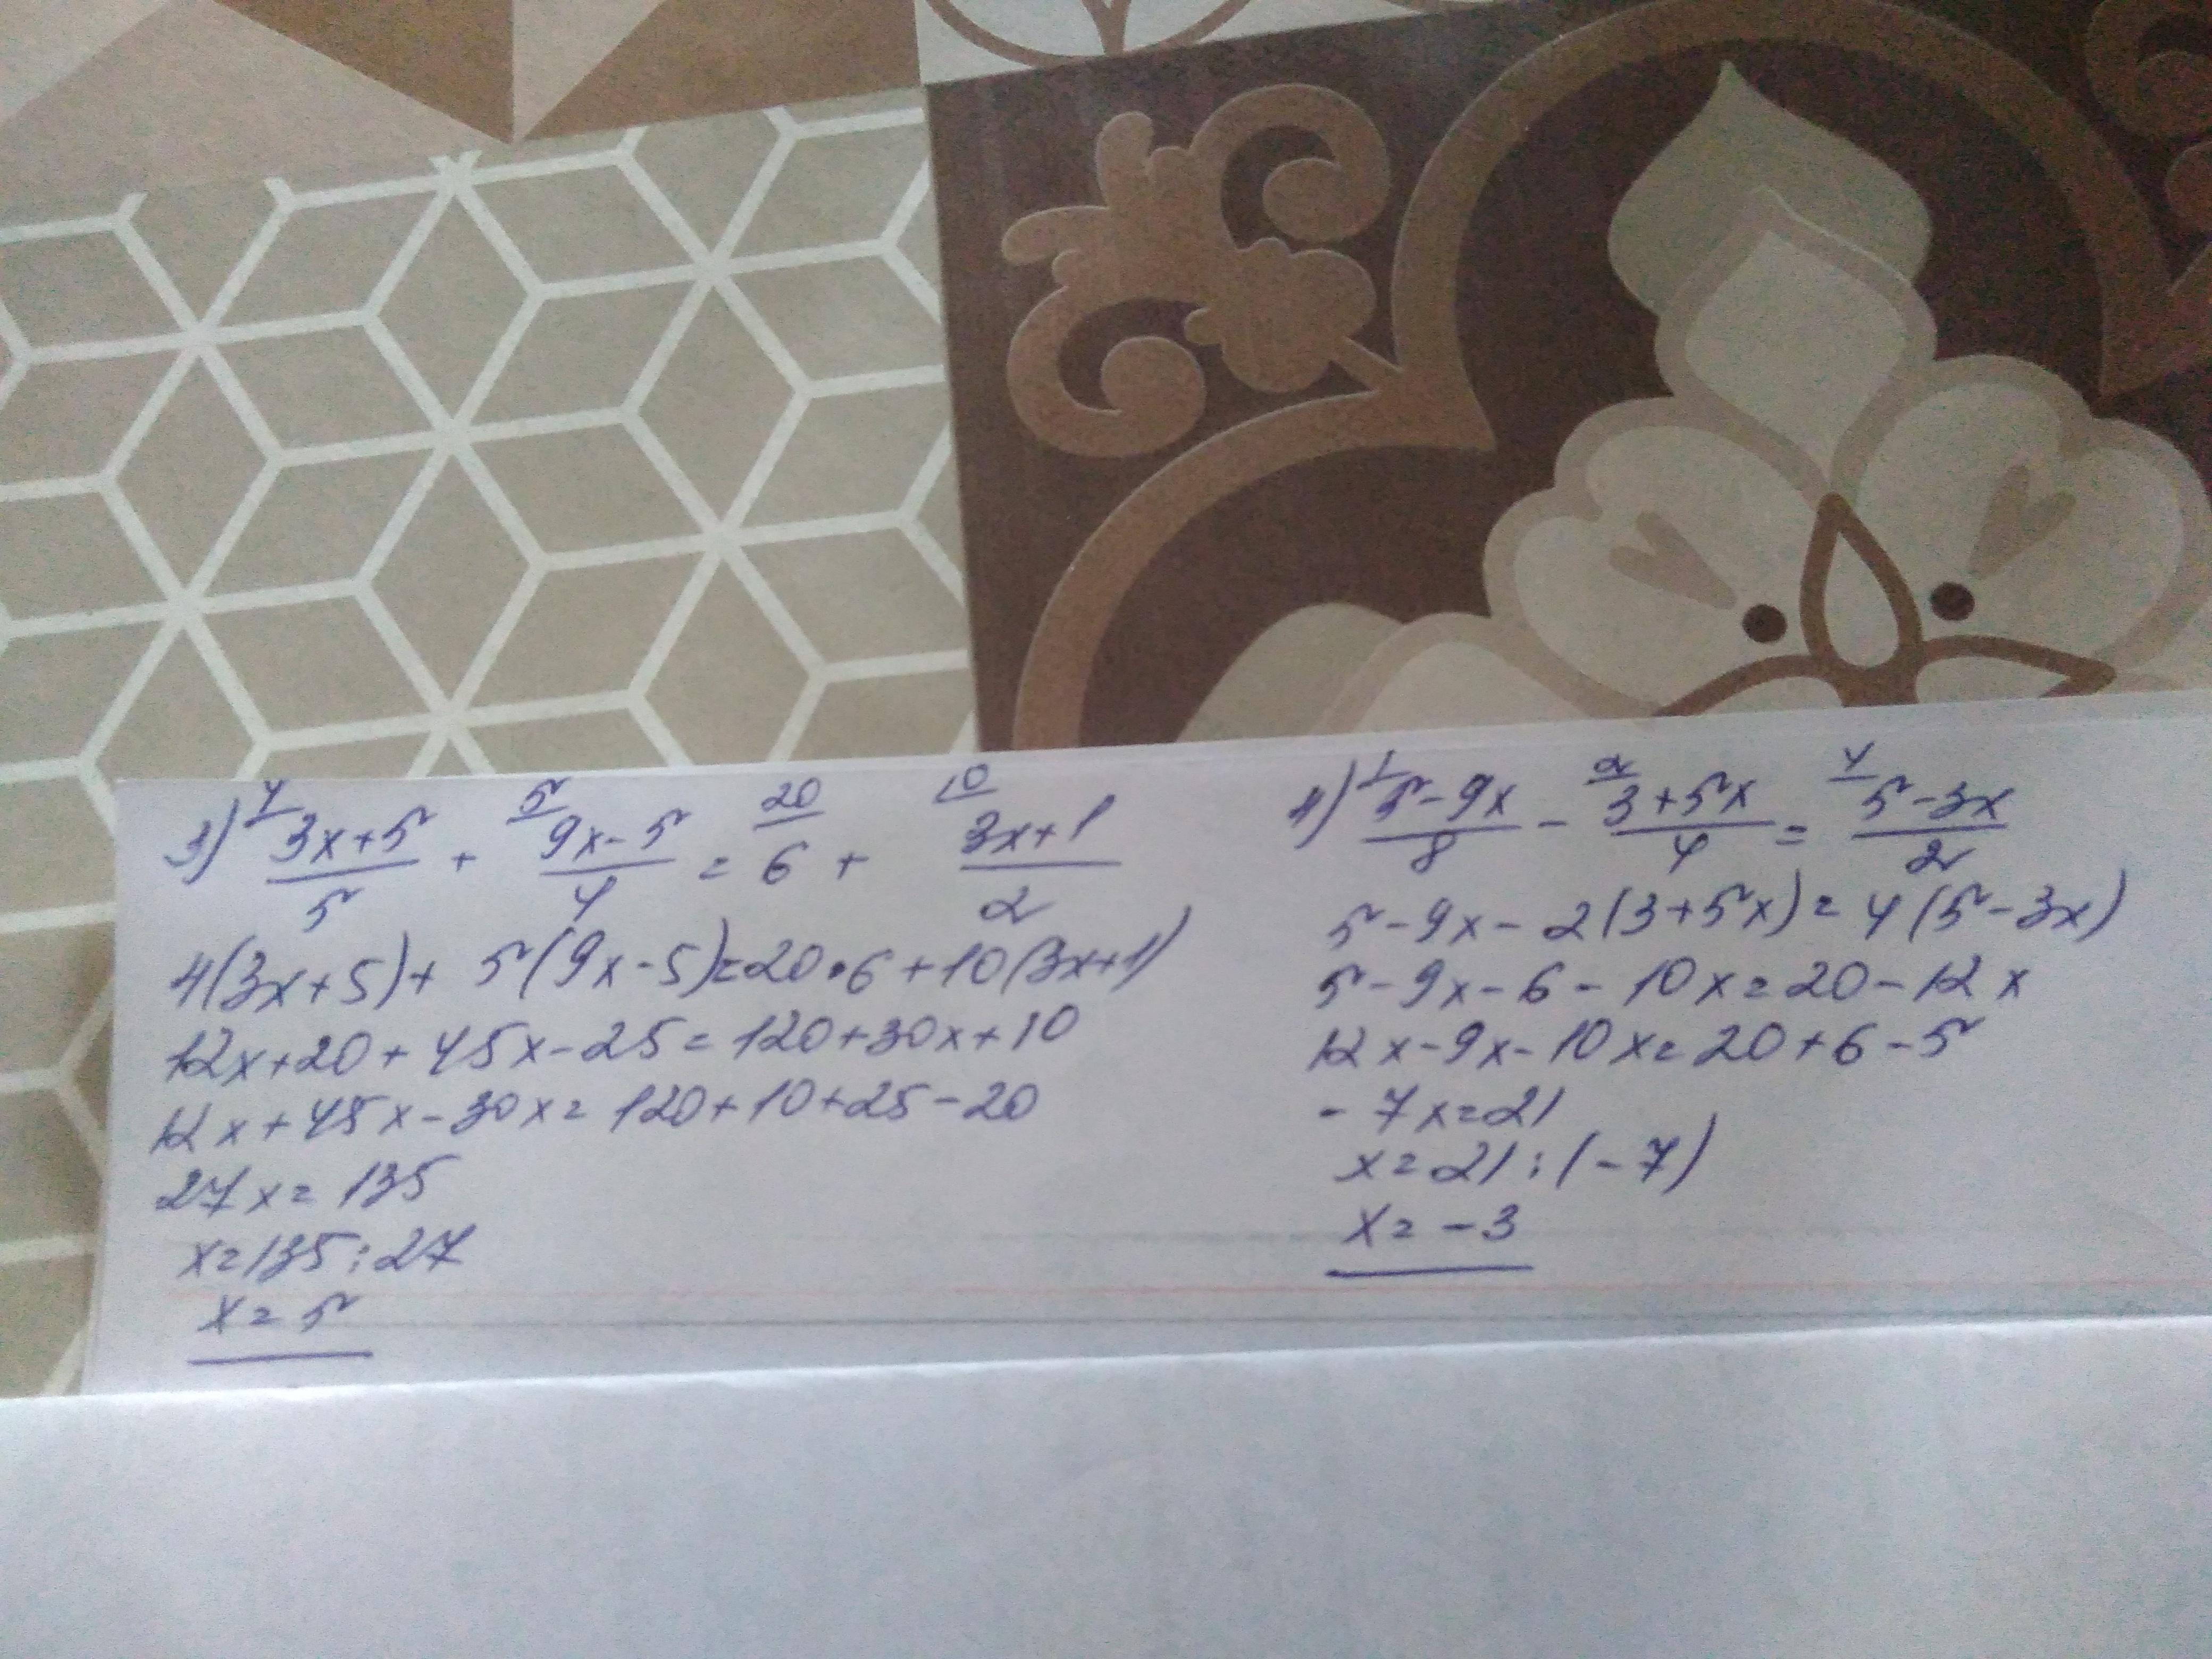 3) 4/ (3x+5)/5 + 5/ (9x-5)/4 = 20/ 6 + 10/ (3x+1)/2
4(3x+5)+ 5(9x-5)=20•6+10(3x+1)
12x+20+45x-25=120+30x+10
12x+45x-30x=120+10+25-20
27x=135
x=135:27
x=5
4) 1/ (5-9x)/8 - 2/ (3+5x)/4 = 4/ (5-3x)/2
5-9x-2(3+5x)=4(5-3x)
5-9x-6-10x=20-12x
12x-9x-10x=20+6-5
-7x=21
x=21:(-7)
x=-3